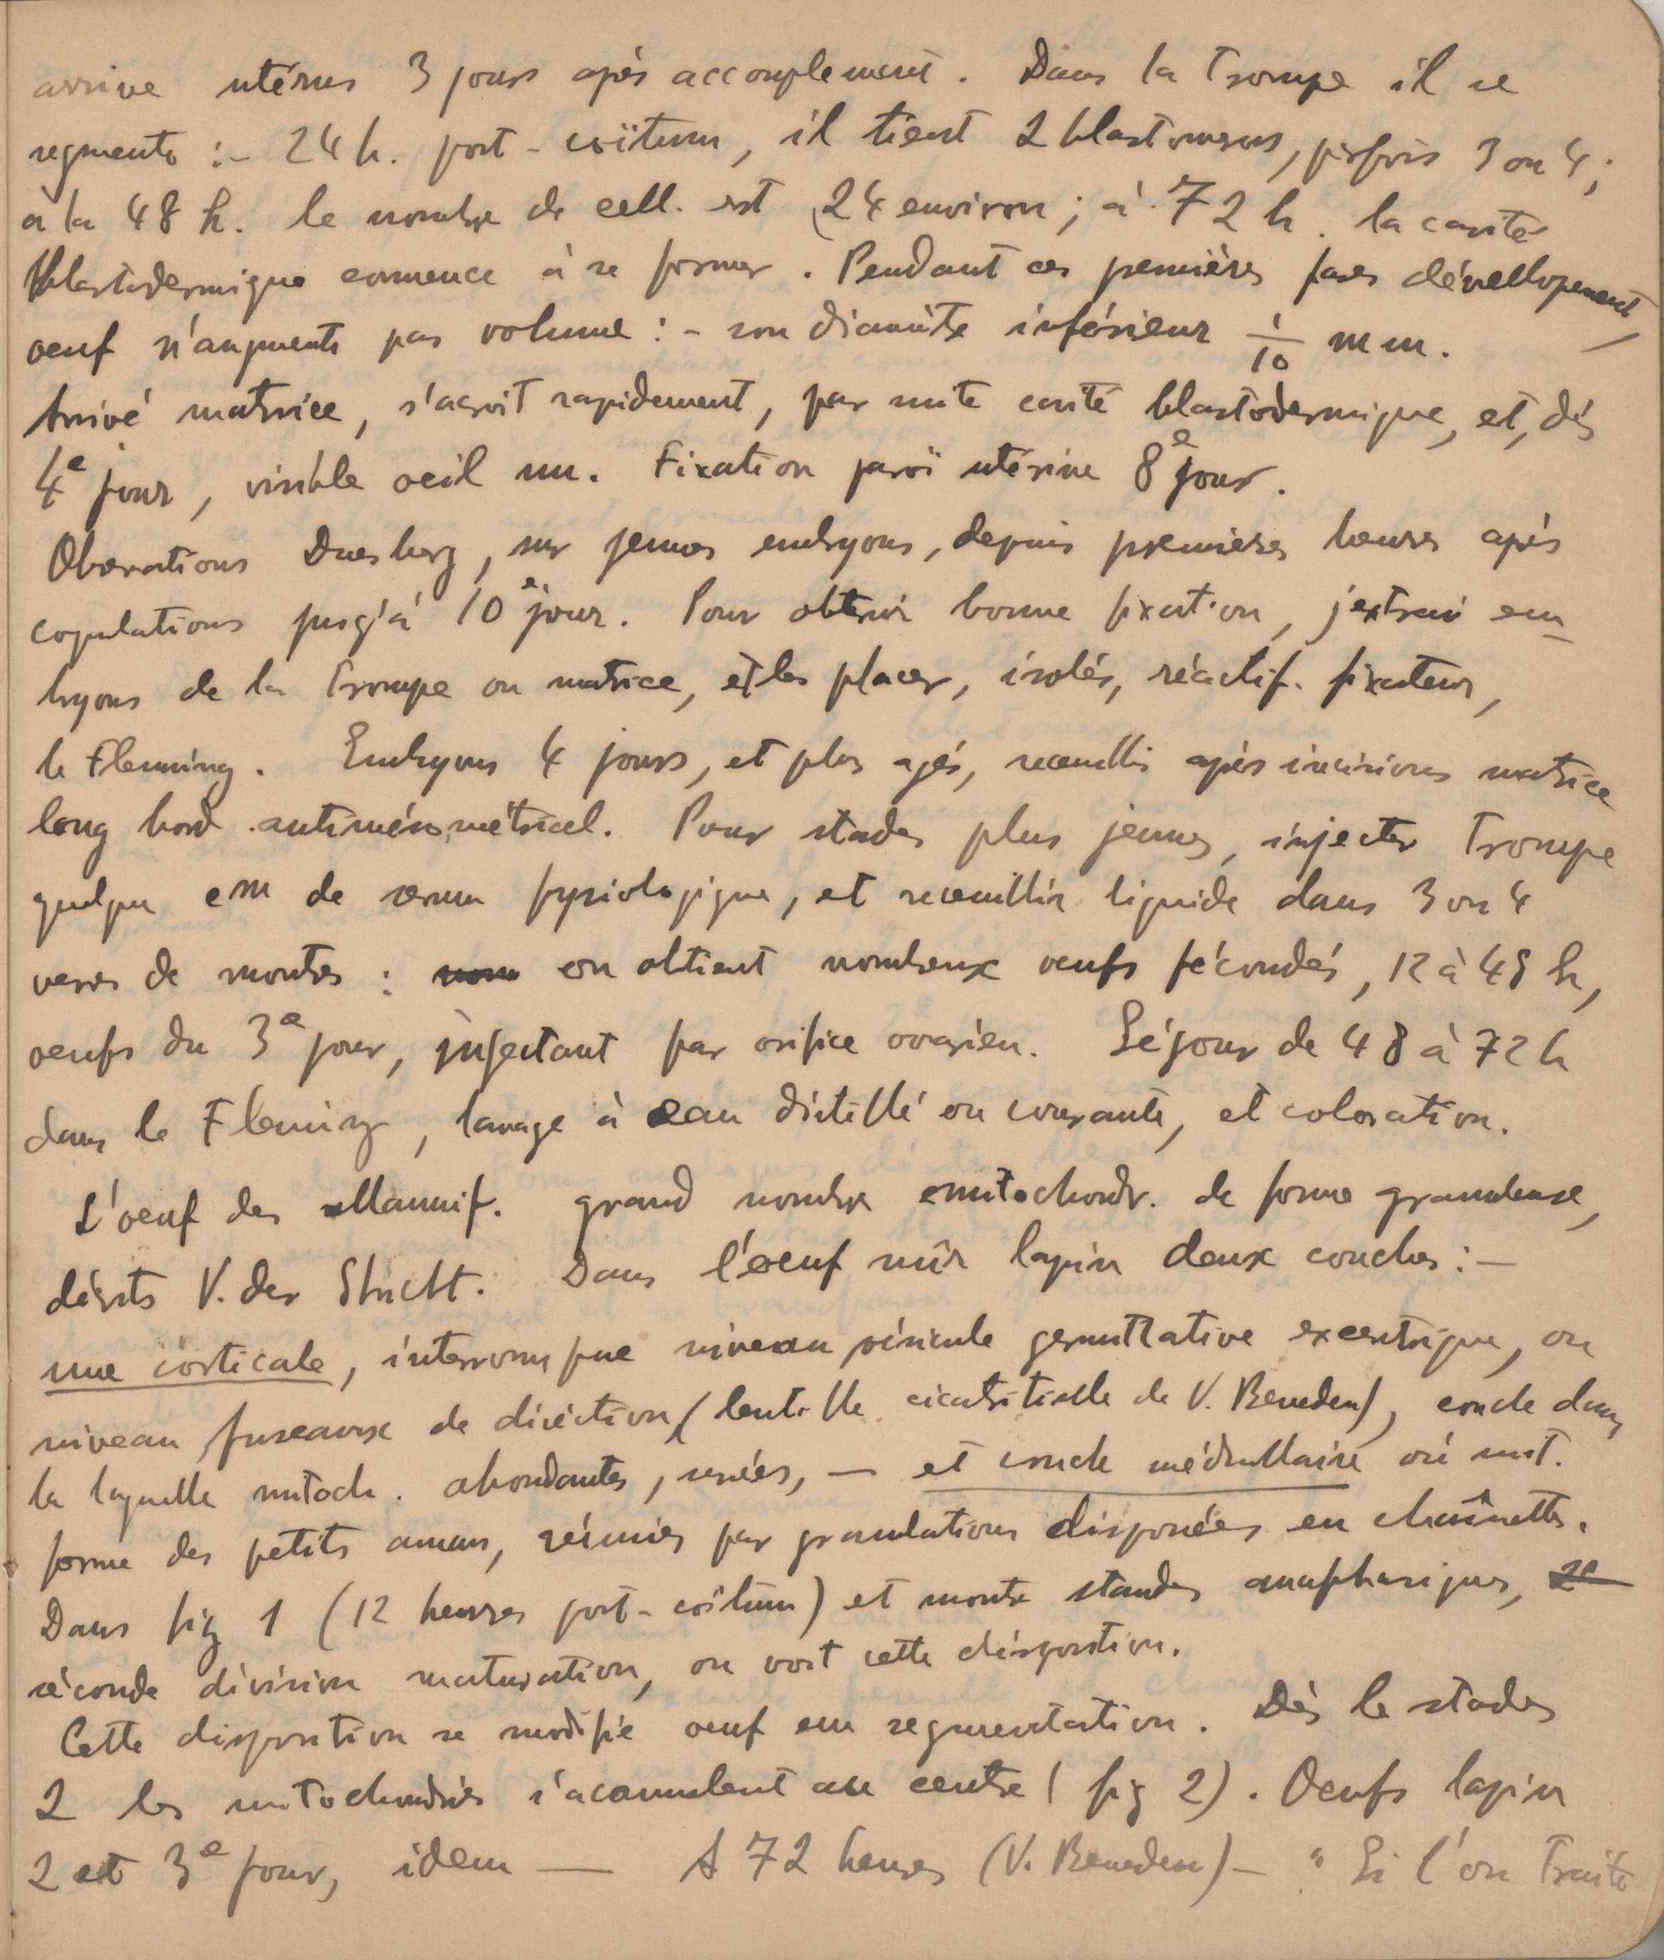 arrive utérus 3 jours après accouplement. Dans la Trompe il se
segmente :- 24 h. port-coïtum, il tient 2 blastomeres, parfois 3 ou 4;
à la 48 h. le nombre de cell. est 24 environ; à 72 h. la cavité
blastodermique commence à se former. Pendant ces premières fases dévellopement,
oeuf n'augmente pas volume :- son diamètre inférieur 1/10 mm.
Arrivé matrice, s'acroit rapidement, par suite cavité blastodermique, et, dès
4e jour, visible oeil nu. Fixation paroi utérine 8e jour.
Obervations Duesberg, sur jeunes embryons, depuis premieres heures après
copulations jusq'à 10e jour. Pour obtenir bonne fixation, j'extrai em-
bryons de la Trompe ou matrice, et les placer, isolés, réactif. fixateur,
le Flemming. Embryons 4 jours, et plus agés, recueillis après incisions matrice
long bord antimésométrical. Pour stades plus jeunes, injecter Trompe
quelque cm de serum fysiologique, et recueillir liquide dans 3 ou 4
veres de montre : on obtient nombeux oeufs fécondés, 12 à 48 h,
oeufs du 3e jour, injectant par orifice ovarien. Séjour de 48 à 72 h
dans le Fleming, lavage à eau distillé ou courante, et coloration.
L'oeuf des Mammif. grand nombre mitochondr. de forme granuleuse,
décrits V. der Stricht. Dans l'oeuf mûr lapin deux couches :-
une corticale, interrompue niveau vésicule germillative excentrique, ou
niveau fuseaux de diréction (lentille cicatritielle de V. Beneden), couche dans
la laquelle mitoch. abondantes, serrées, — et couche médullaire où mit.
forme des petits amas, réunies par granulations disposées en chaînette.
Dans fig 1 (12 heures port-coïtum) et montre standes anaphasiques,
séconde division maturation, on voit cette disposition.
Cette disposition se modifie oeuf em segmentation. Dès le stades
2 les mitochondries s'acumulent au centre (fig 2). Oeufs lapin
2 et 3e jour, idem — A 72 heures (V. Beneden) - "Si l'on Traite